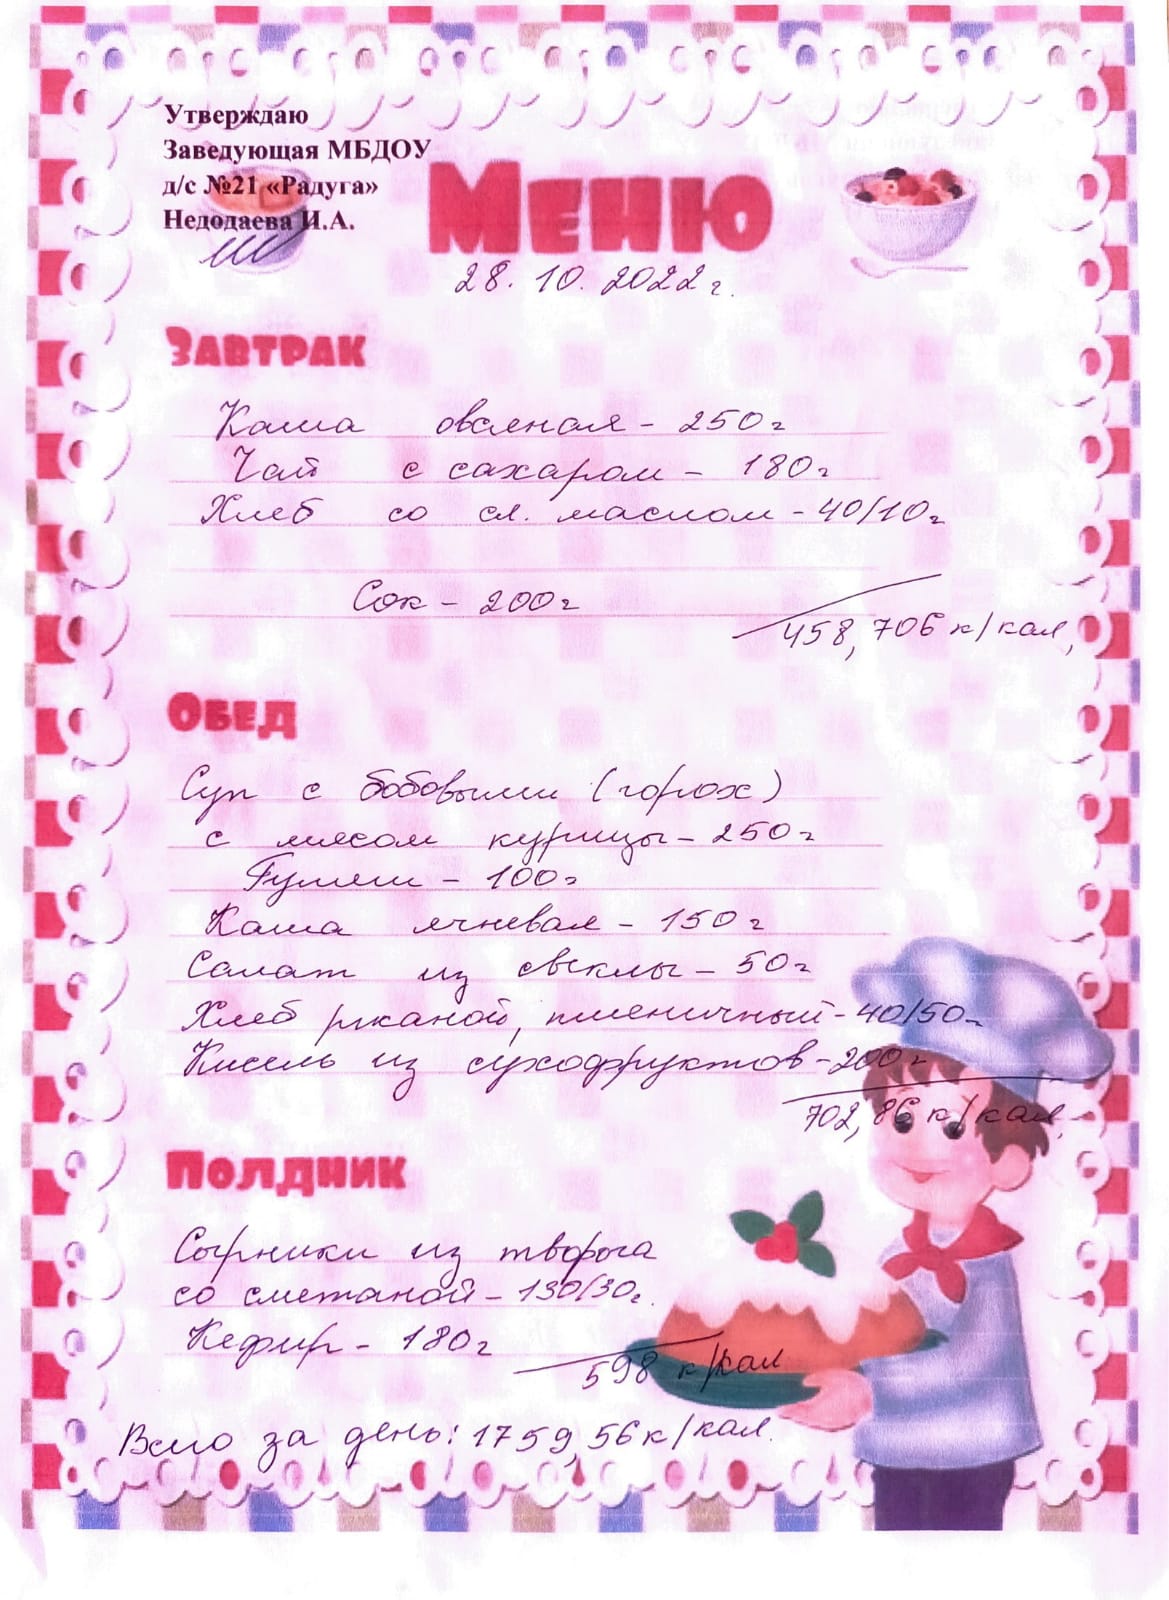 Утверждаю
Заведующая МБДОУ
д/с №21 «Радуга»
Недодаева И.А.
Меню
28.10.2022г.
Завтрак
Каша овсяная - 250г
Чай с сахаром - 180г
Хлеб со сл. маслом - 40/10г
Сок - 200г
458,706 к/кал,
Обед
Суп с бобовыми (горох)
с мясом курицы - 250г
Гуляш - 100г
Каша ячневая - 150г
Салат из свеклы - 50г
Хлеб ржаной, пшеничный - 40/50г
Кисель из сухофруктов - 200г
702,86 к/кал.
Полдник
Сырники из творога
со сметаной - 130/30г.
Кефир - 180г
598 к/кал
Всего за день: 1759,56 к/кал.